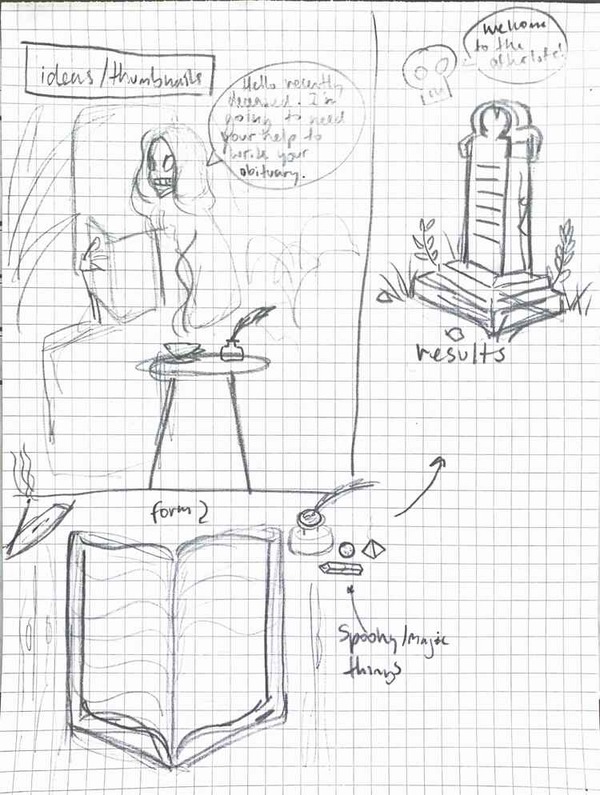 ideas/thumbnails
Hello recently
deceased. I'm
going to need
your help to
write your
obituary.
Welcome
to the
results
form
Spooky/Magic
things